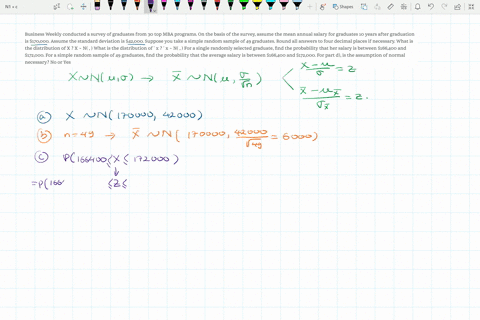 Business Weekly conducted a survey of graduates from 30 top MBA programs. On the basis of the survey, assume the mean annual salary for graduates 10 years after graduation
is $170,000. Assume the standard deviation is $42,000. Suppose you take a simple random sample of 49 graduates. Round all answers to four decimal places if necessary. What is
the distribution of X ? X ~ N( , ) What is the distribution of ¯x ? ¯x ~ N( , ) For a single randomly selected graduate, find the probability that her salary is between $166,400 and
$172,000. For a simple random sample of 49 graduates, find the probability that the average salary is between $166,400 and $172,000. For part d), is the assumption of normal
necessary? No or Yes
X ~ N(μ,σ) → X̄ ~ N(μ, σ/√n)
X-μ/σ = Z
X̄-μx̄/σx̄ = Z.
(a) X ~ N(170000, 42000)
(b) n=49 → X̄ ~ N(170000, 42000/√49 = 6000)
(c) P(166400 ≤ X ≤ 172000)
=P(166 ≤ Z ≤